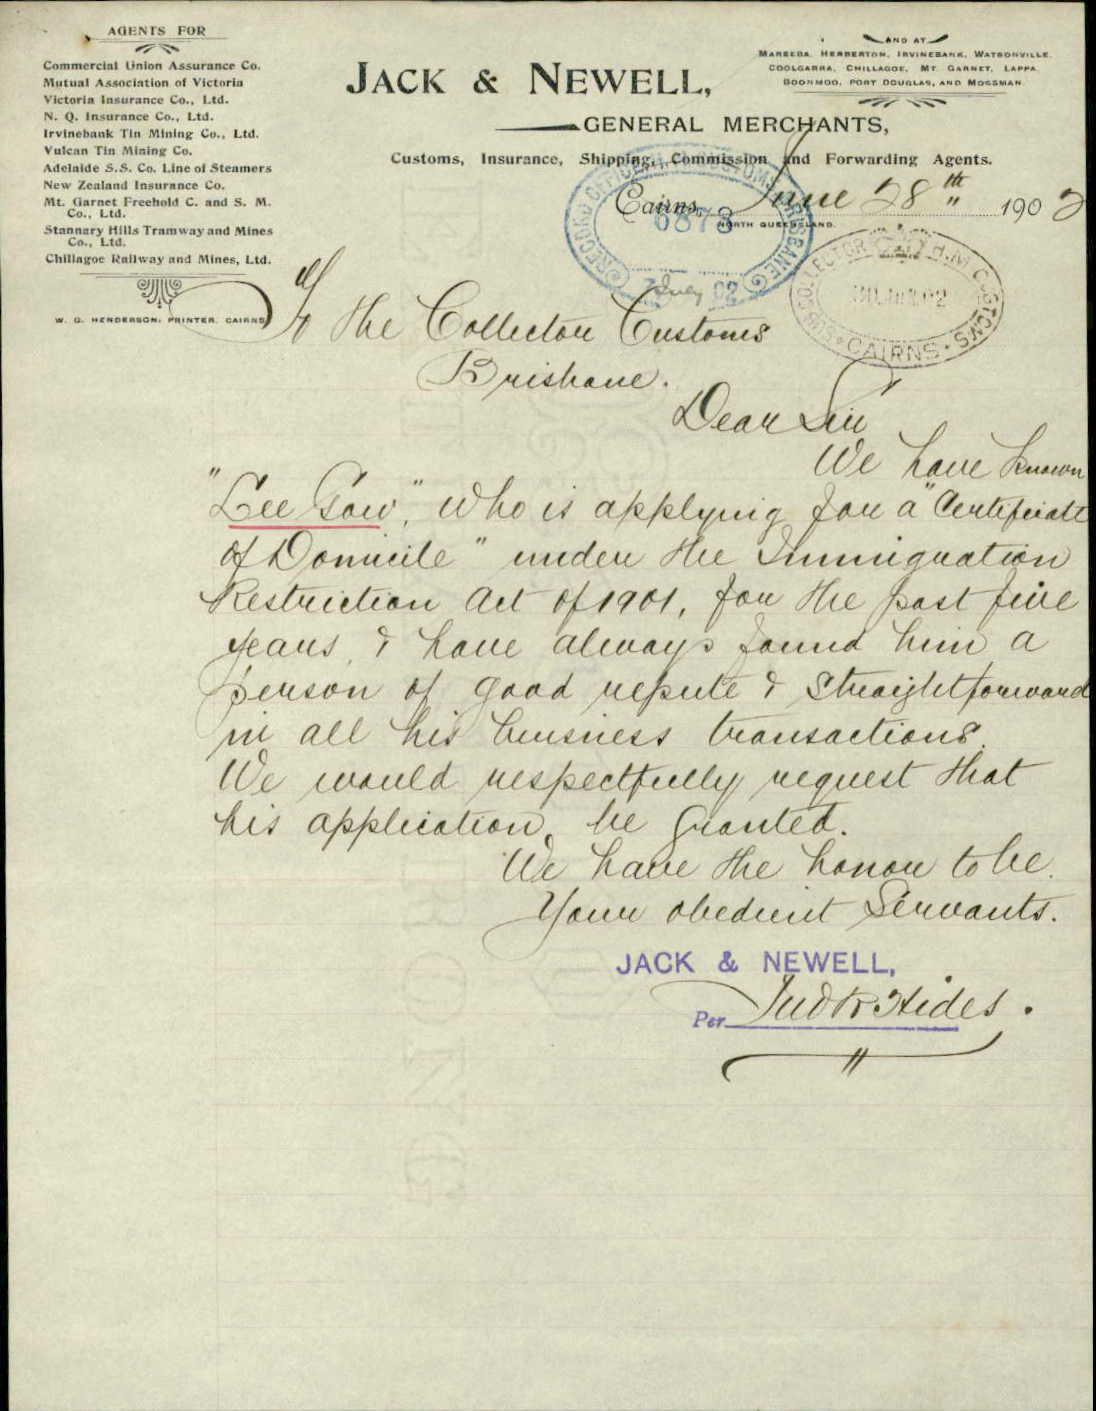 AGENTS FOR
Commercial Union Assurance Co.
Mutual Association of Victoria
Victoria Insurance Co., Ltd.
N. Q. Insurance Co., Ltd.
Irvinebank Tin Mining Co., Ltd.
Vulcan Tin Mining Co.
Adelaide S.S. Co. Line of Steamers
New Zealand Insurance Co.
Mt. Garnet Freehold C. and S. M.
Co., Ltd.
Stannary Hills Tramway and Mines
Co., Ltd.
Chillagoe Railway and Mines, Ltd.
W. G. HENDERSON, PRINTER, CAIRNS
AND AT
MAREEBA, HERBERTON, IRVINEBANK, WATSONVILLE,
COOLGARRA, CHILLAGOE, MT GARNET, LAPPA,
BOONMOO, PORT DOUGLAS, AND MOSSMAN.
JACK & NEWELL,
GENERAL MERCHANTS,
Customs, Insurance, Shipping, Commission and Forwarding Agents.
Cairns, June 28th 1902
NORTH QUEENSLAND.
RECORD OFFICE CUSTOMS BRISBANE
6873
July 02
SUB-COLLECTOR H.M. CUSTOMS
CAIRNS
To The Collector Customs
Brisbane.
Dear Sir
We have known
"Lee Gow", who is applying for a "Certificate
of Domicile" under the Immigration
Restriction Act of 1901, for the past five
years, & have always found him a
person of good repute & straightforward
in all his business transactions.
We would respectfully request that
his application, be granted.
We have the honor to be.
Your obedient Servants.
JACK & NEWELL,
Per Hides.